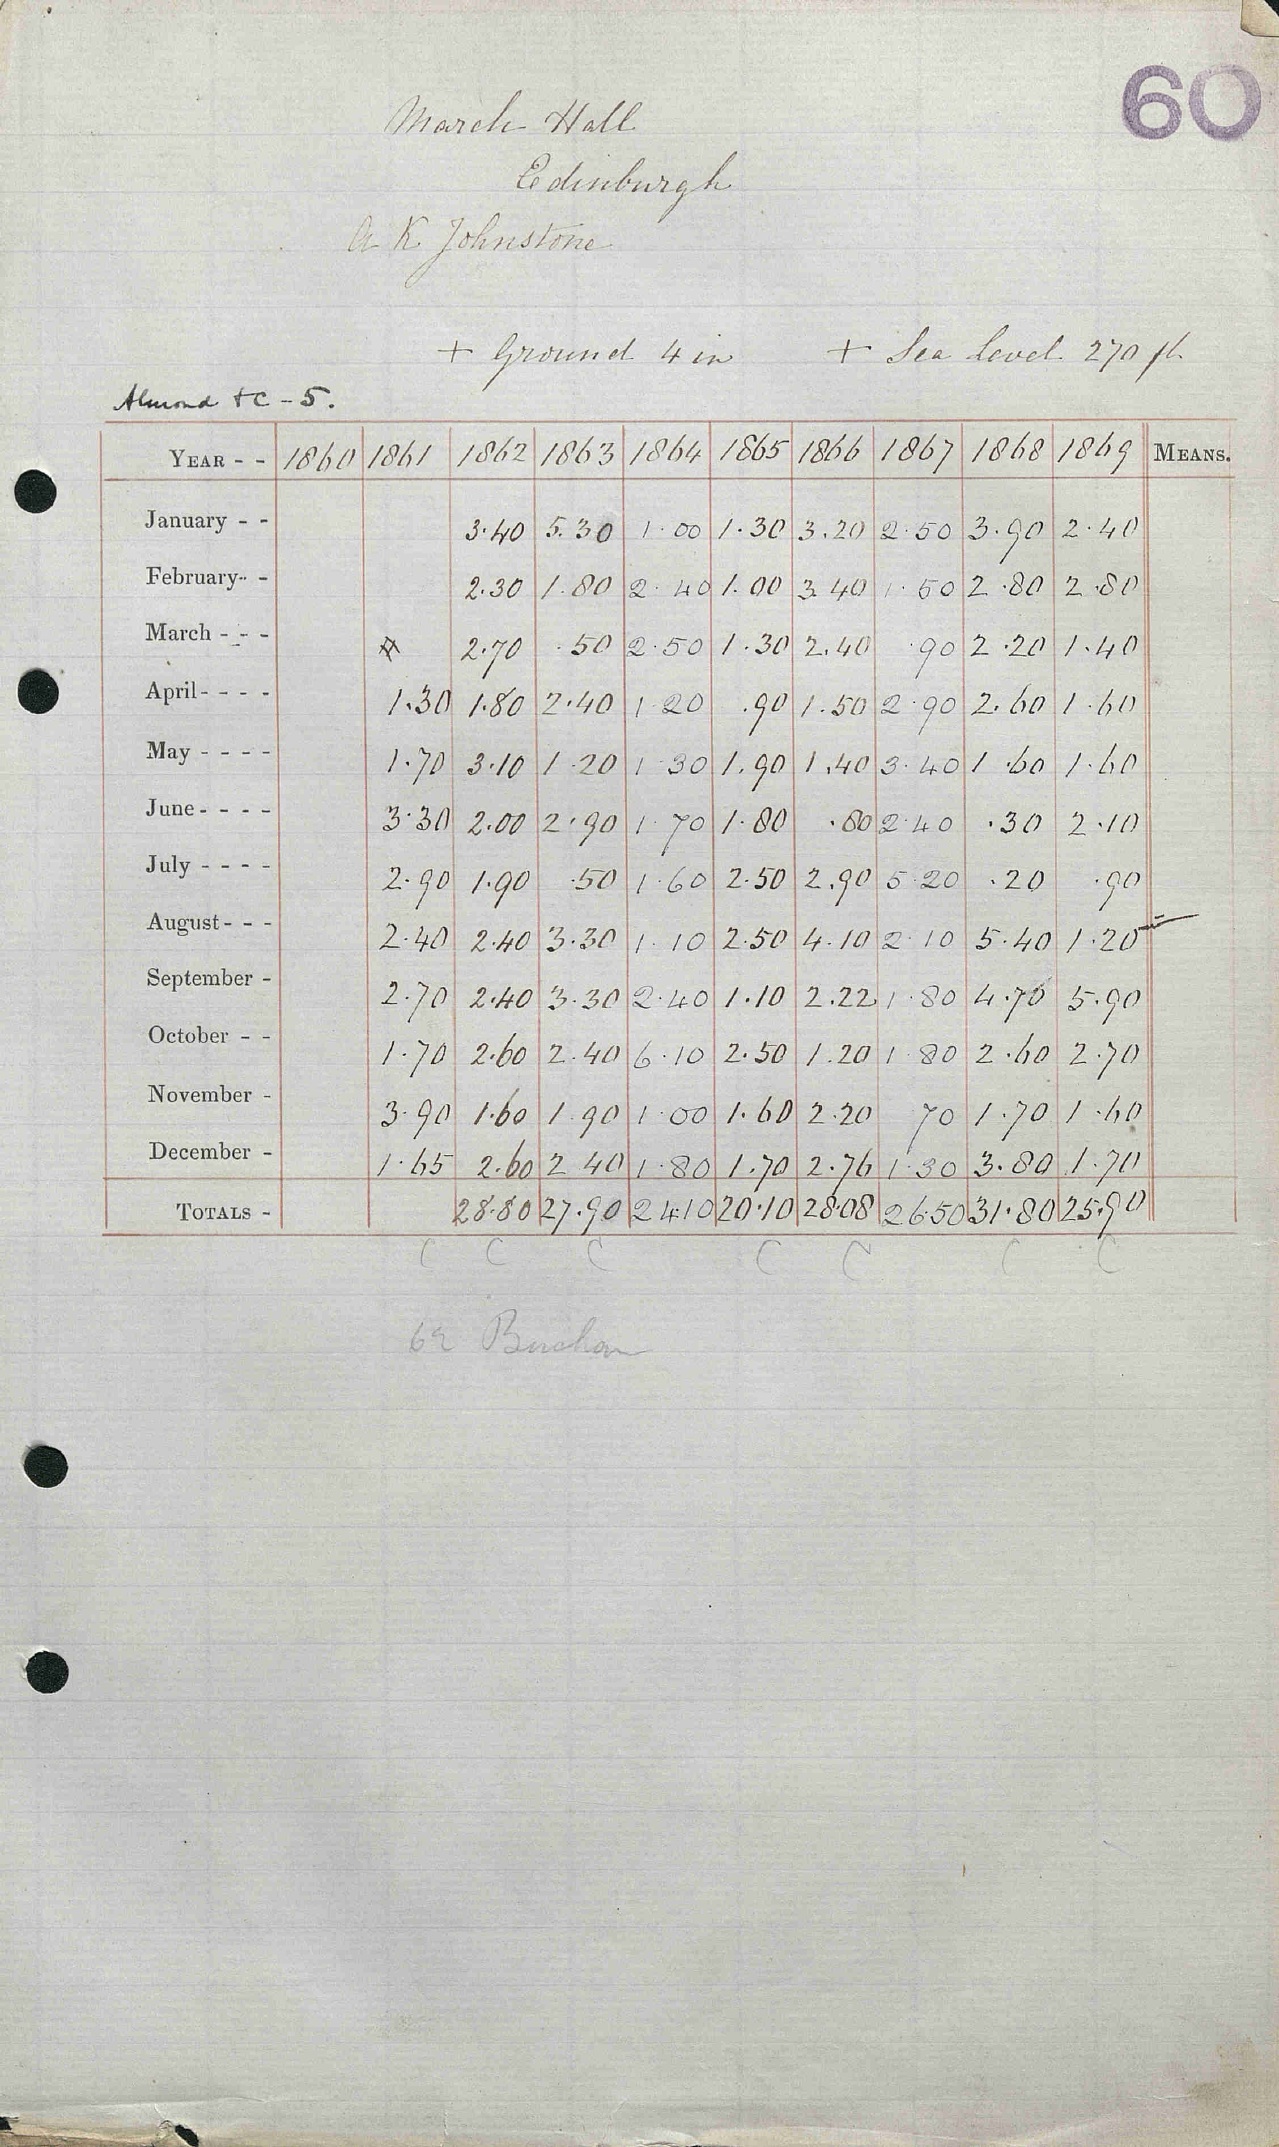 60
March Hall
Edinburgh
A K Johnstone
+ Ground 4 in + Sea Level 270 ft
Almond &c - 5.
YEAR - - 1860 1861 1862 1863 1864 1865 1866 1867 1868 1869 MEANS.
January - - 3.40 5.30 1.00 1.30 3.20 2.50 3.90 2.40
February - - 2.30 1.80 2.40 1.00 3.40 1.50 2.80 2.80
March - - - 2.70 .50 2.50 1.30 2.40 .90 2.20 1.40
April - - - - 1.30 1.80 2.40 1.20 .90 1.50 2.90 2.60 1.60
May - - - - 1.70 3.10 1.20 1.30 1.90 1.40 3.40 1.60 1.60
June - - - - 3.30 2.00 2.90 1.70 1.80 .80 2.40 .30 2.10
July - - - - 2.90 1.90 .50 1.60 2.50 2.90 5.20 .20 .90
August - - - 2.40 2.40 3.30 1.10 2.50 4.10 2.10 5.40 1.20
September - 2.70 2.40 3.30 2.40 1.10 2.22 1.80 4.70 5.90
October - - 1.70 2.60 2.40 6.10 2.50 1.20 1.80 2.60 2.70
November - 3.90 1.60 1.90 1.00 1.60 2.20 70 1.70 1.60
December - 1.65 2.60 2 40 1.80 1.70 2.76 1.30 3.80 1.70
TOTALS - 28.80 27.90 24.10 20.10 28.08 26.50 31.80 25.90
C C C C C C C
Buchan